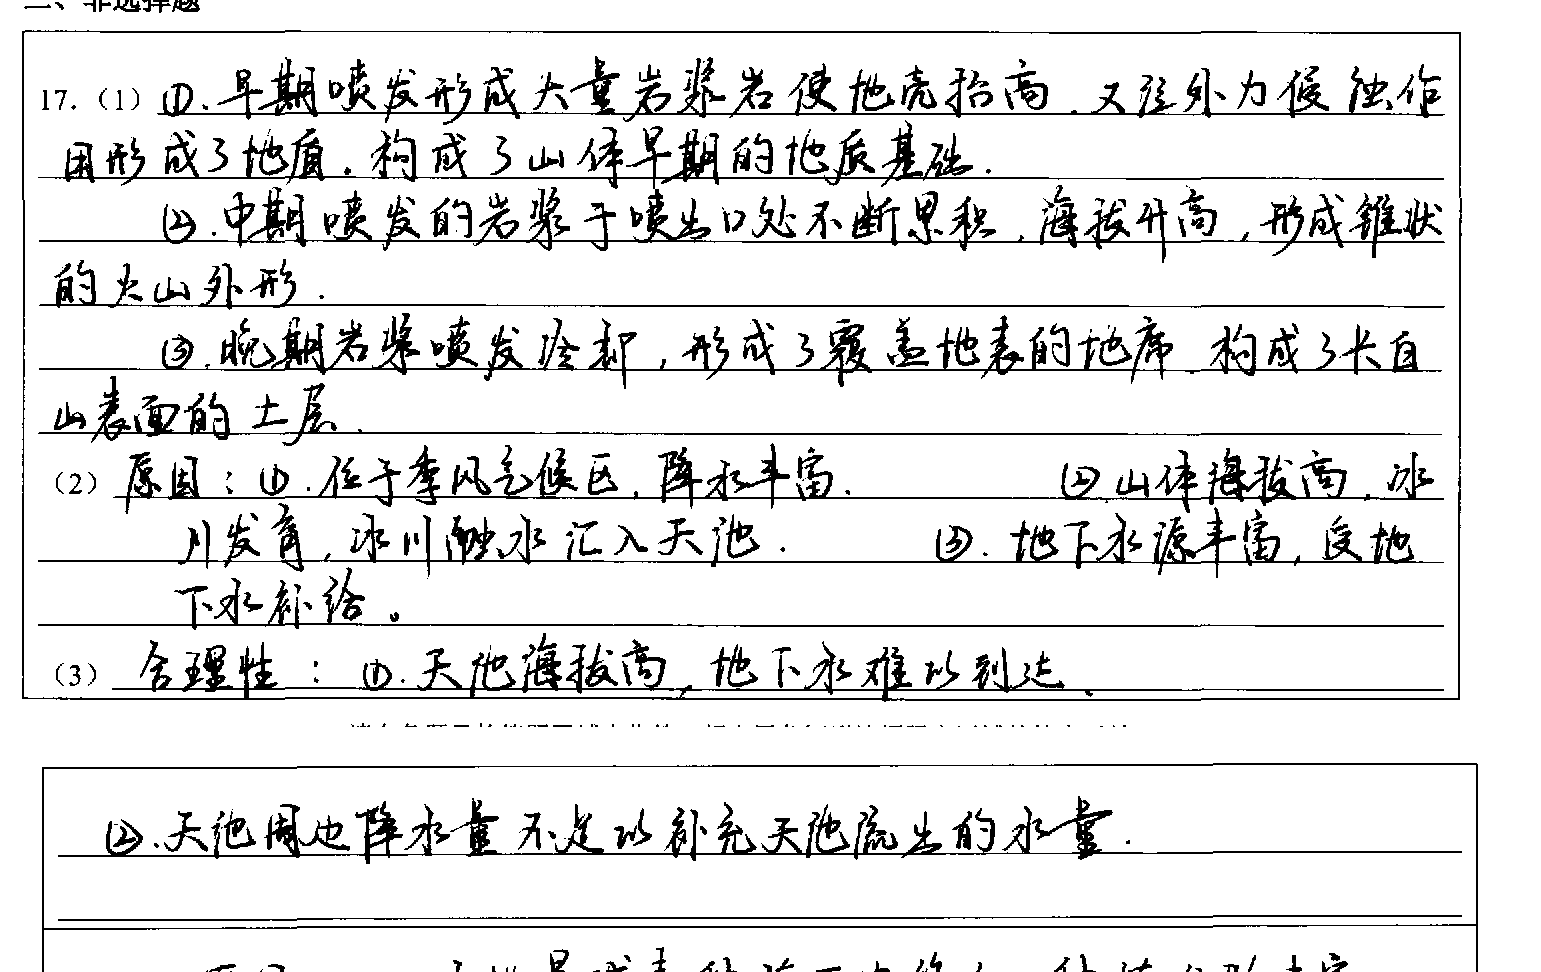 二、非选择题
17.（1）①.早期喷发形成大量岩浆岩使地壳抬高.又经外力侵蚀作
用形成了地盾.构成了山体早期的地质基础.
②.中期喷发的岩浆于喷出口处不断累积.海拔升高,形成锥状
的火山外形.
③.晚期岩浆喷发冷却,形成了覆盖地表的地席.构成了长白
山表面的土层.
（2）原因:①.位于季风气候区,降水丰富. ②山体海拔高,冰
川发育,冰川融水汇入天池. ③.地下水源丰富,受地
下水补给。
（3）合理性:①.天池海拔高,地下水难以到达.
②.天池周边降水量不足以补充天池流出的水量.